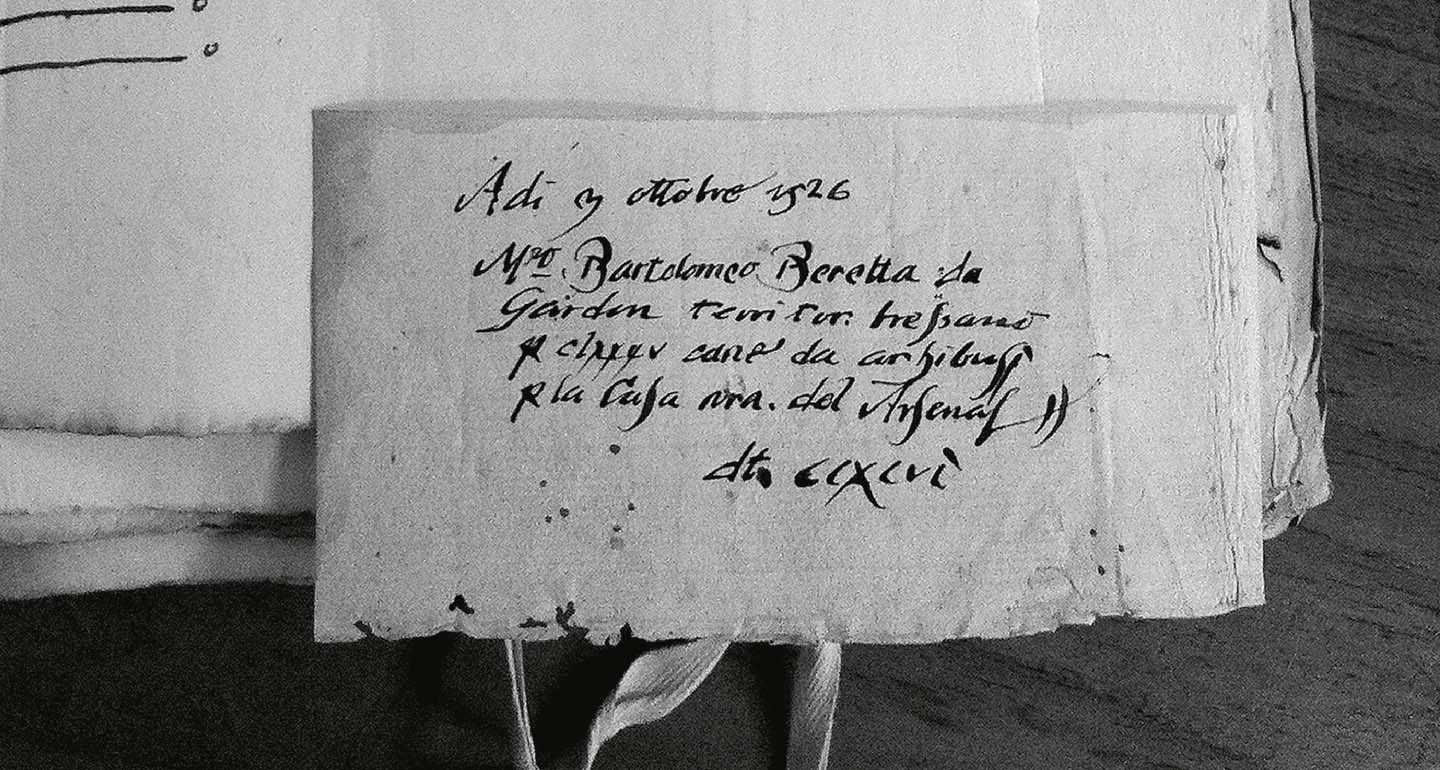 Adi 3 ottobre 1526
Mro. Bartolomeo Beretta da
Gardon territor. bressano
p clxxxv cane da archibussi
p la Casa nra. del Arsenal
dti. cclxxxvi